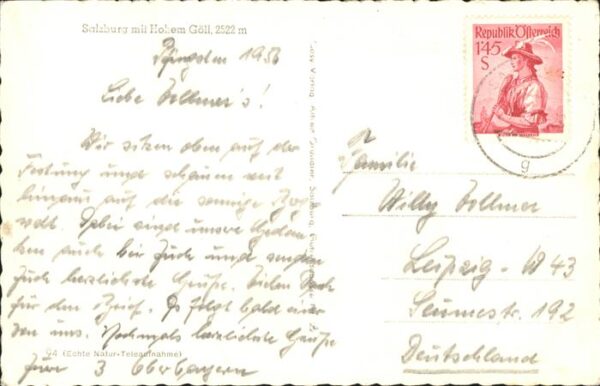 Salzburg mit Hohem Göll, 2522 m
Pfingsten 1956
Liebe Vollmer's!
Wir sitzen oben auf der
Festung und schauen weit
hinaus auf die sonnige
Dabei sind unsere Gedan-
ken auch bei Euch und senden
Euch herzlichste Grüße. Vielen Dank
für den Brief. Es folgt bald einer
von uns. Nochmals herzliche Grüße
Eure 3 Oberbayern
94 (Echte Natur-Teleaufnahme)
Republik Österreich
1'45
S
g
Familie
Willy Vollmer
Leipzig - W 43
Seumestr. 192
Deutschland